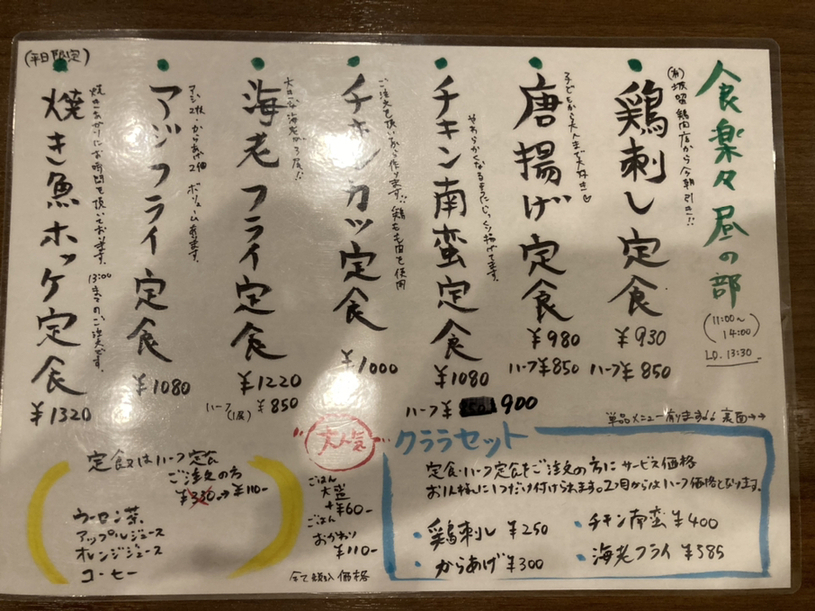 食楽々昼の部
(11:00~
14:00)
LO. 13:30
鶏刺し定食
¥930
ハーフ ¥850
唐揚げ定食
子どもから大人まで大好き♡
¥980
ハーフ ¥850
チキン南蛮定食
やわらかくなるようにじっくり揚げてます。
¥1080
ハーフ ¥900
チキンカツ定食
¥1000
海老フライ定食
¥1220
ハーフ(1尾) ¥850
アジフライ定食
アジ2枚、からあげ2個 ボリュームあります。
¥1080
(平日限定)
焼き魚ホッケ定食
焼きあがりにお時間を頂いております。
13:00までのご注文です。
¥1320
単品メニュー有ります↓↓ 裏面→→
大人気
クララセット
定食・ハーフ定食をご注文の方にサービス価格
お1人様に1つだけ付けられます。2つ目からはハーフ価格となります。
・鶏刺し ¥250
・チキン南蛮 ¥400
・からあげ ¥300
・海老フライ ¥585
ごはん
大盛
+¥60-
ごはん
おかわり
¥110-
全て税込価格
定食又はハーフ定食
ご注文の方
¥330→¥110-
ウーロン茶
アップルジュース
オレンジジュース
コーヒー